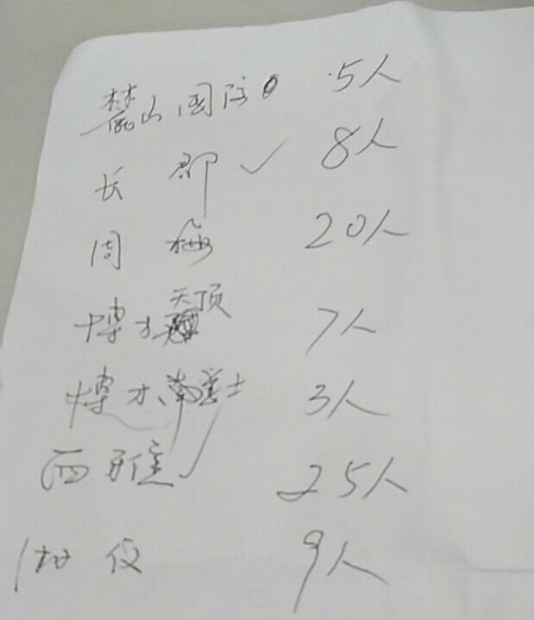 麓山国际 5人
长郡✓ 8人
周 20人
博才天顶 7人
博才 3人
西雅✓ 25人
9人